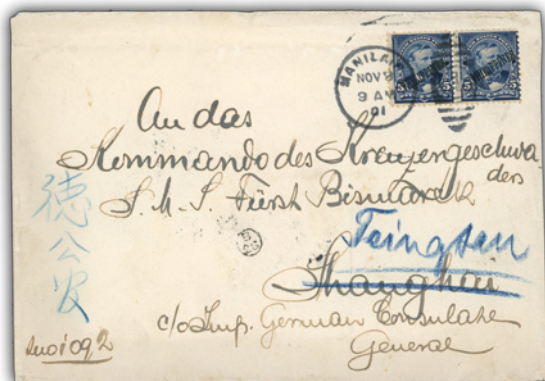 MANILA
NOV
9 AM
01
An das
Kommando des Kreuzergeschwa
ders
S. M. S. Fürst Bismarck
Tsingtau
Shanghai
c/o Imp. German Consulate
General
德公安